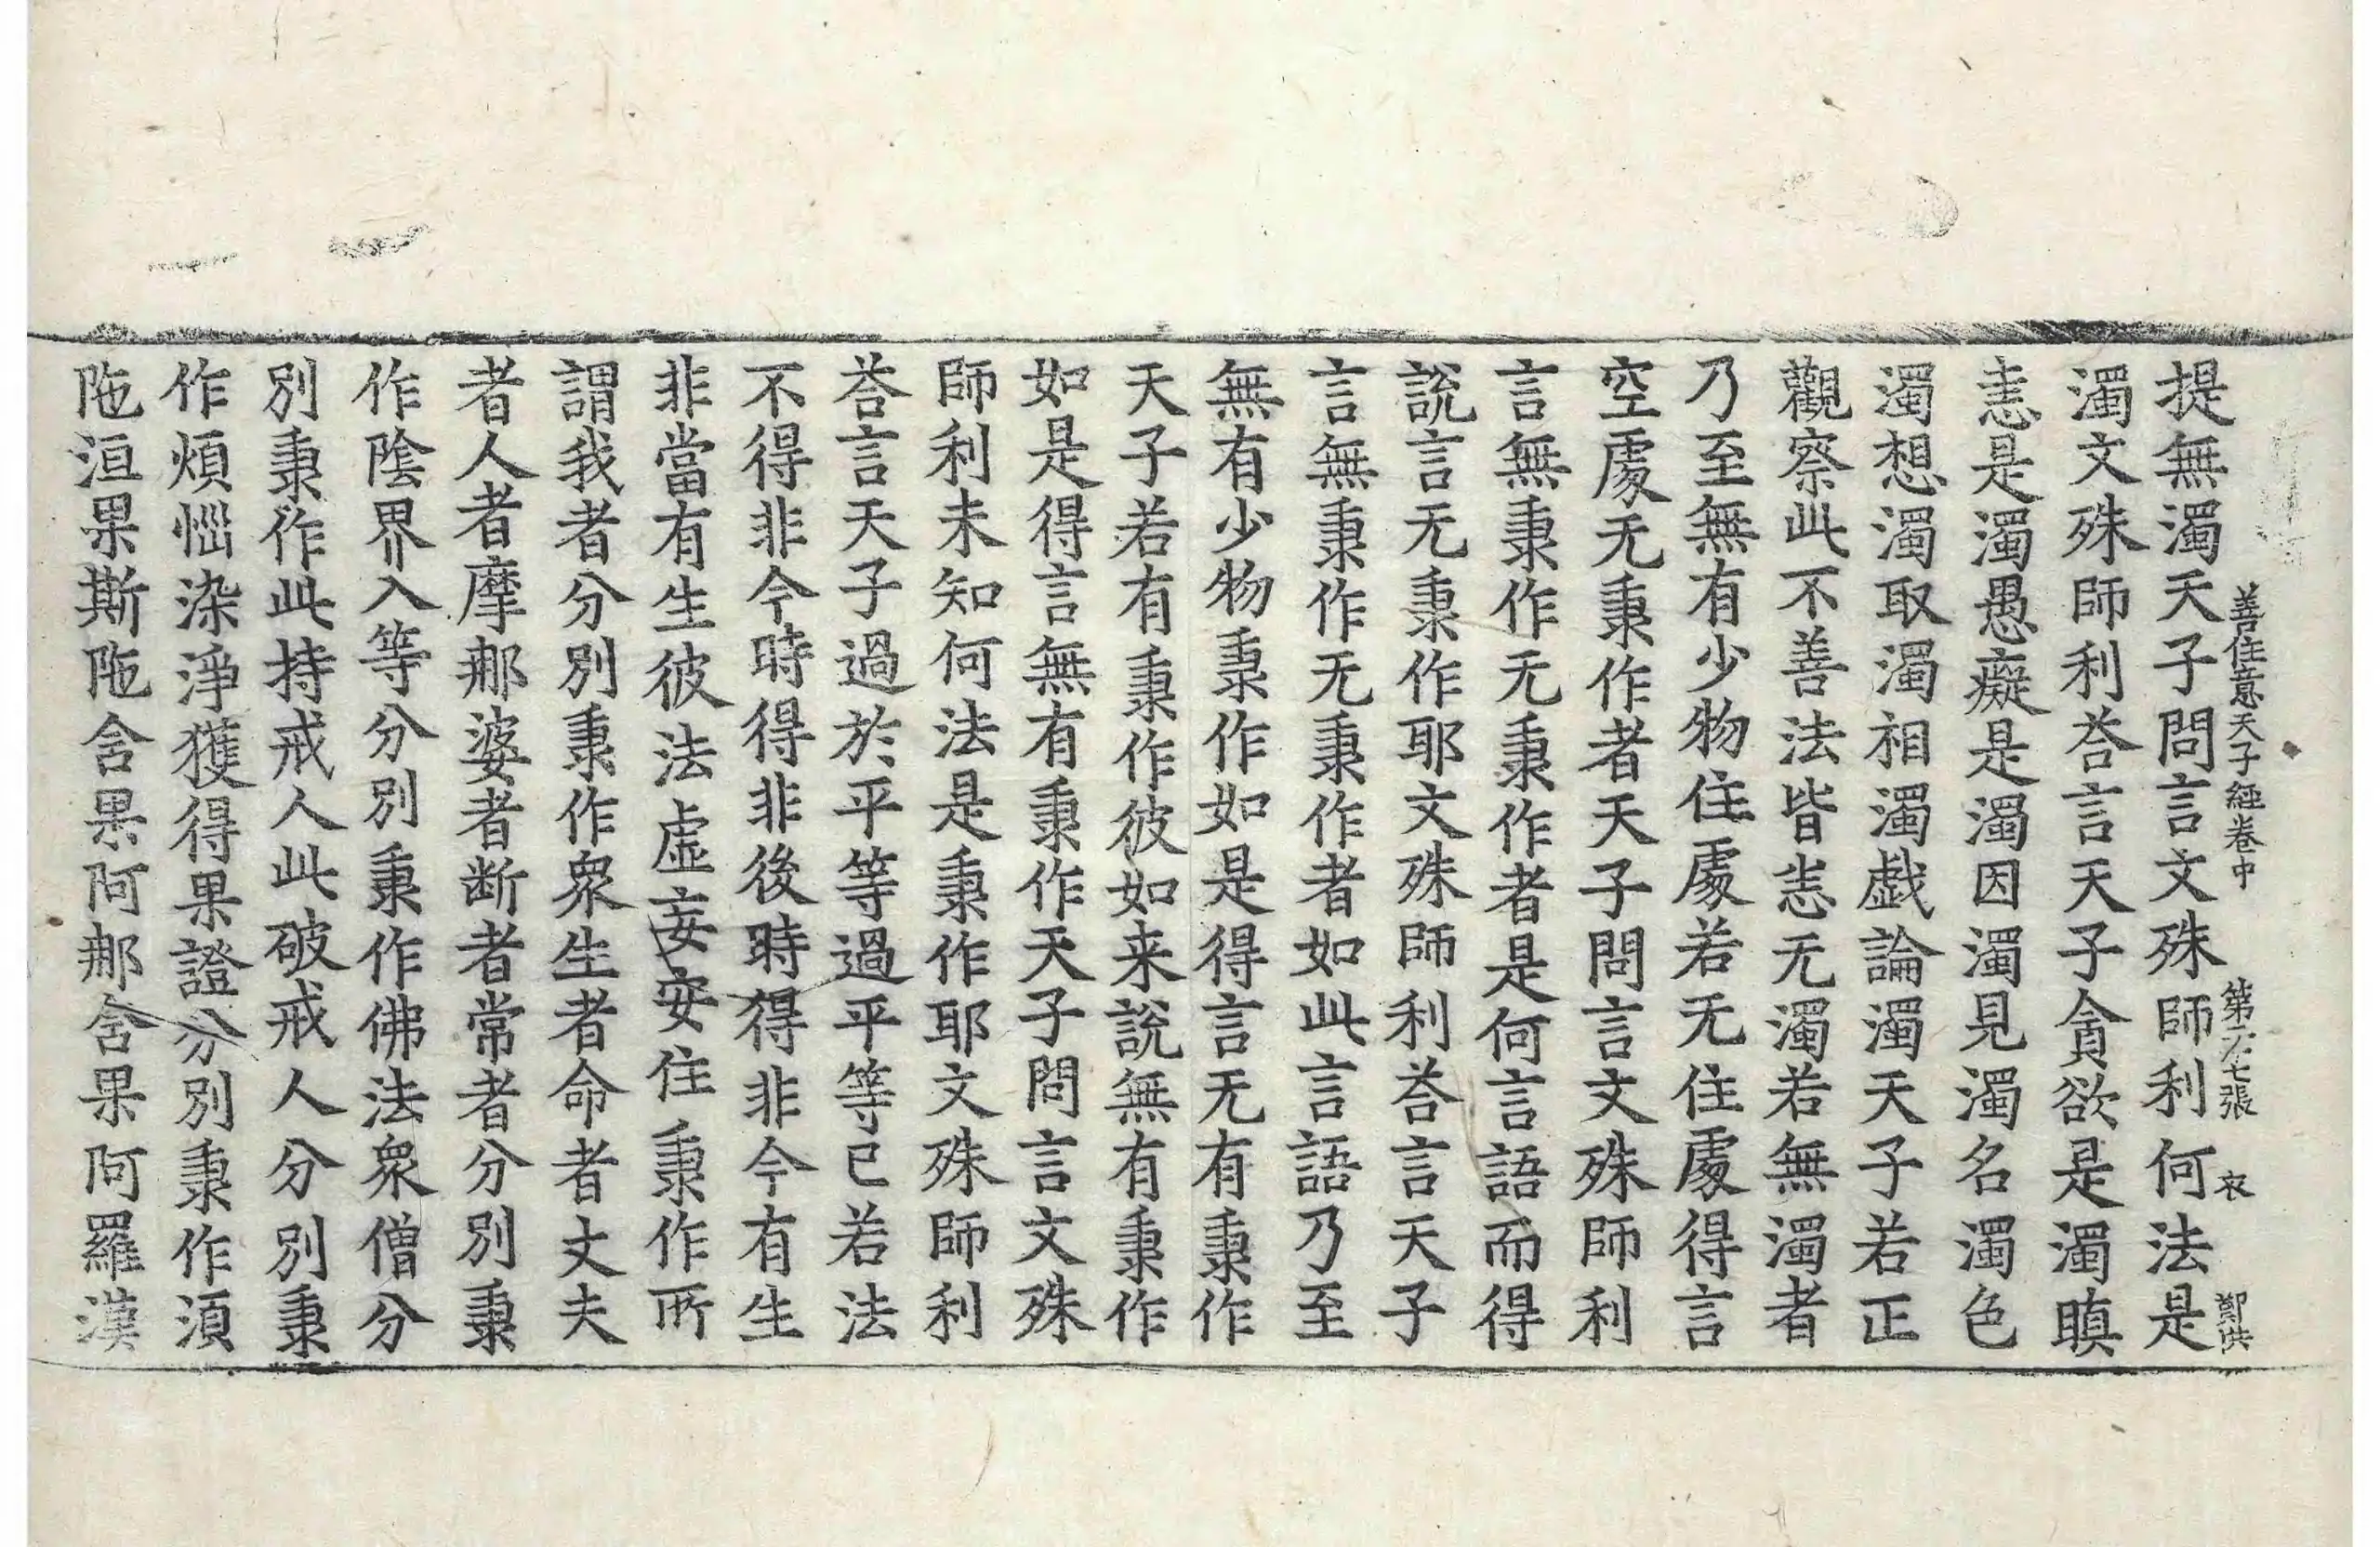 善住意天子經卷中 第七張 衣 鄭洪
提無濁天子問言文殊師利何法是
濁文殊師利荅言天子貪欲是濁瞋
恚是濁愚癡是濁因濁見濁名濁色
濁想濁取濁相濁戯論濁天子若正
觀察此不善法皆悉无濁若無濁者
乃至無有少物住處若无住處得言
空處无秉作者天子問言文殊師利
言無秉作无秉作者是何言語而得
說言无秉作耶文殊師利荅言天子
言無秉作无秉作者如此言語乃至
無有少物秉作如是得言无有秉作
天子若有秉作彼如来說無有秉作
如是得言無有秉作天子問言文殊
師利未知何法是秉作耶文殊師利
荅言天子過於平等過平等已若法
不得非今時得非後時得非今有生
非當有生彼法虛妄安住秉作所
謂我者分別秉作衆生者命者丈夫
者人者摩那婆者断者常者分別秉
作陰界入等分別秉作佛法衆僧分
別秉作此持戒人此破戒人分別秉
作煩惱染淨獲得果證分別秉作湏
陁洹果斯陁含果阿那含果阿羅漢